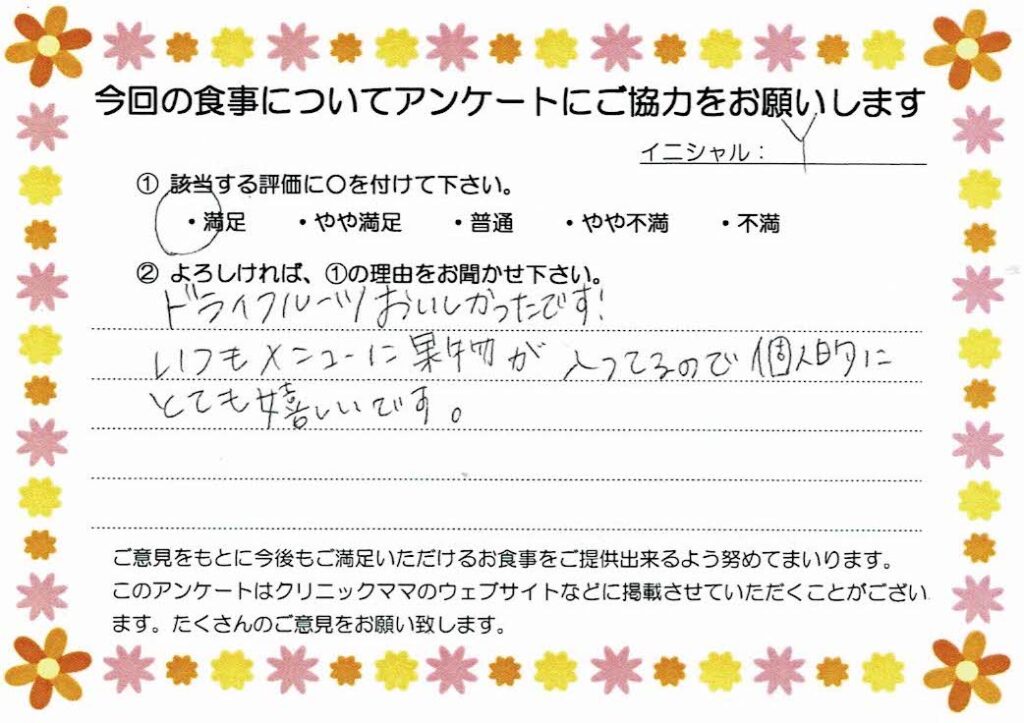 今回の食事についてアンケートにご協力をお願いします
イニシャル： Y
① 該当する評価に〇を付けて下さい。
・満足 ・やや満足 ・普通 ・やや不満 ・不満
② よろしければ、①の理由をお聞かせ下さい。
ドライフルーツおいしかったです！
いつもメニューに果物が入ってるので個人的に
とても嬉しいです。
ご意見をもとに今後もご満足いただけるお食事をご提供出来るよう努めてまいります。
このアンケートはクリニックママのウェブサイトなどに掲載させていただくことがござい
ます。たくさんのご意見をお願い致します。